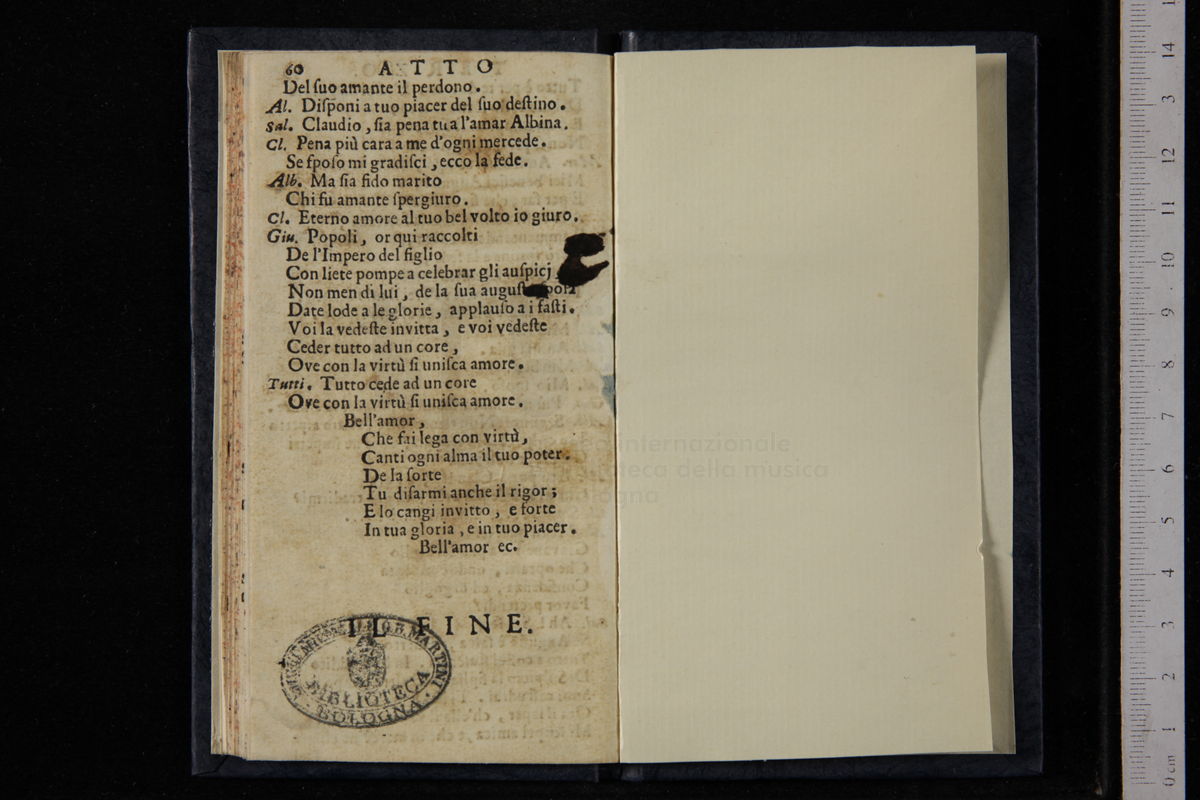 60 ATTO
Del ſuo amante il perdono.
Al. Diſponi a tuo piacer del ſuo deſtino.
Sal. Claudio, ſia pena tua l'amar Albina.
Cl. Pena più cara a me d'ogni mercede.
Se ſpoſo mi gradiſci, ecco la fede.
Alb. Ma ſia fido marito
Chi fu amante ſpergiuro.
Cl. Eterno amore al tuo bel volto io giuro.
Giu. Popoli, or qui raccolti
De l'Impero del figlio
Con liete pompe a celebrar gli auſpicj
Non men di lui, de la ſua
Date lode a le glorie, applauſo a i faſti.
Voi la vedeſte invitta, e voi vedeſte
Ceder tutto ad un core,
Ove con la virtù ſi uniſca amore.
Tutti. Tutto cede ad un core
Ove con la virtù ſi uniſca amore.
Bell'amor,
Che fai lega con virtù,
Canti ogni alma il tuo poter.
De la ſorte
Tu diſarmi anche il rigor;
E lo cangi invitto, e forte
In tua gloria, e in tuo piacer.
Bell'amor ec.
IL FINE.
G.B. MARTINI
BIBLIOTECA
BOLOGNA
internazionale
della musica
0 cm 1 2 3 4 5 6 7 8 9 10 11 12 3 14